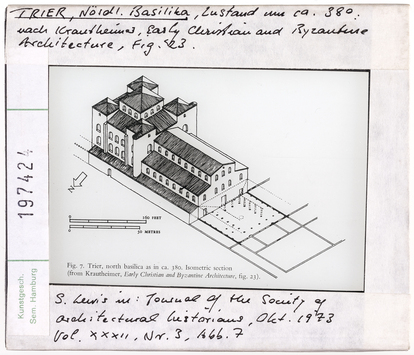 TRIER, Nördl. Basilika, Zustand um ca. 380.
nach Krautheimer, Early Christian and Byzantine
Architecture, Fig. 23.
0 150 FEET
0 50 METRES
Fig. 7. Trier, north basilica as in ca. 380. Isometric section
(from Krautheimer, Early Christian and Byzantine Architecture, fig. 23).
S. Lewis in: Journal of the Society of
architectural historians, Okt. 1973
Vol. XXXII, Nr. 3, Abb. 7
197424
Kunstgesch.
Sem. Hamburg